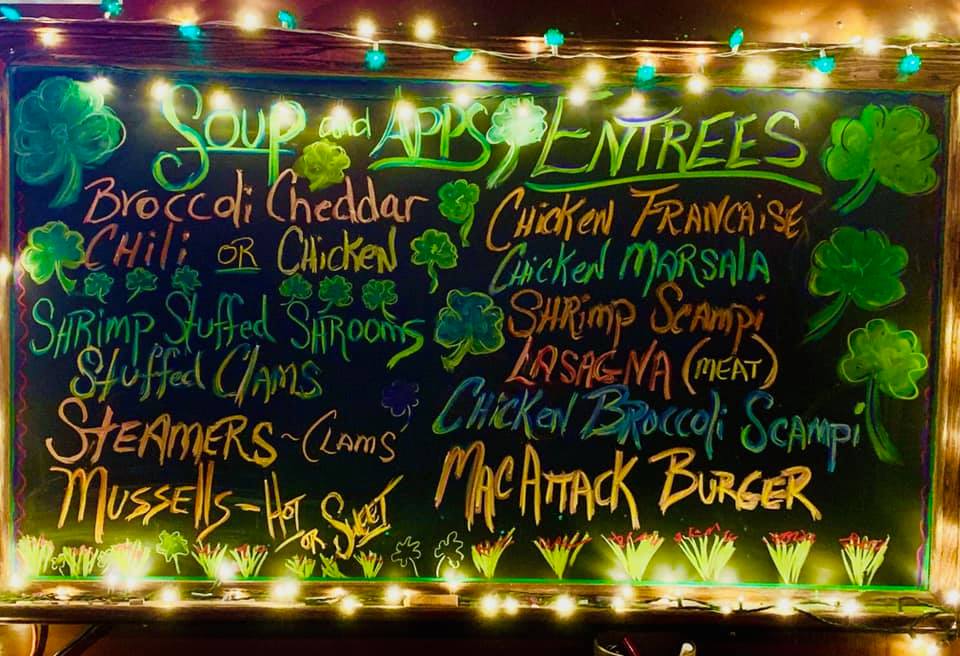 Soup and Apps
Broccoli Cheddar
Chili or Chicken
Shrimp Stuffed Shrooms
Stuffed Clams
Steamers ~ Clams
Mussells - Hot or Sweet
Entrees
Chicken Francaise
Chicken Marsala
Shrimp Scampi
Lasagna (meat)
Chicken Broccoli Scampi
Mac Attack Burger